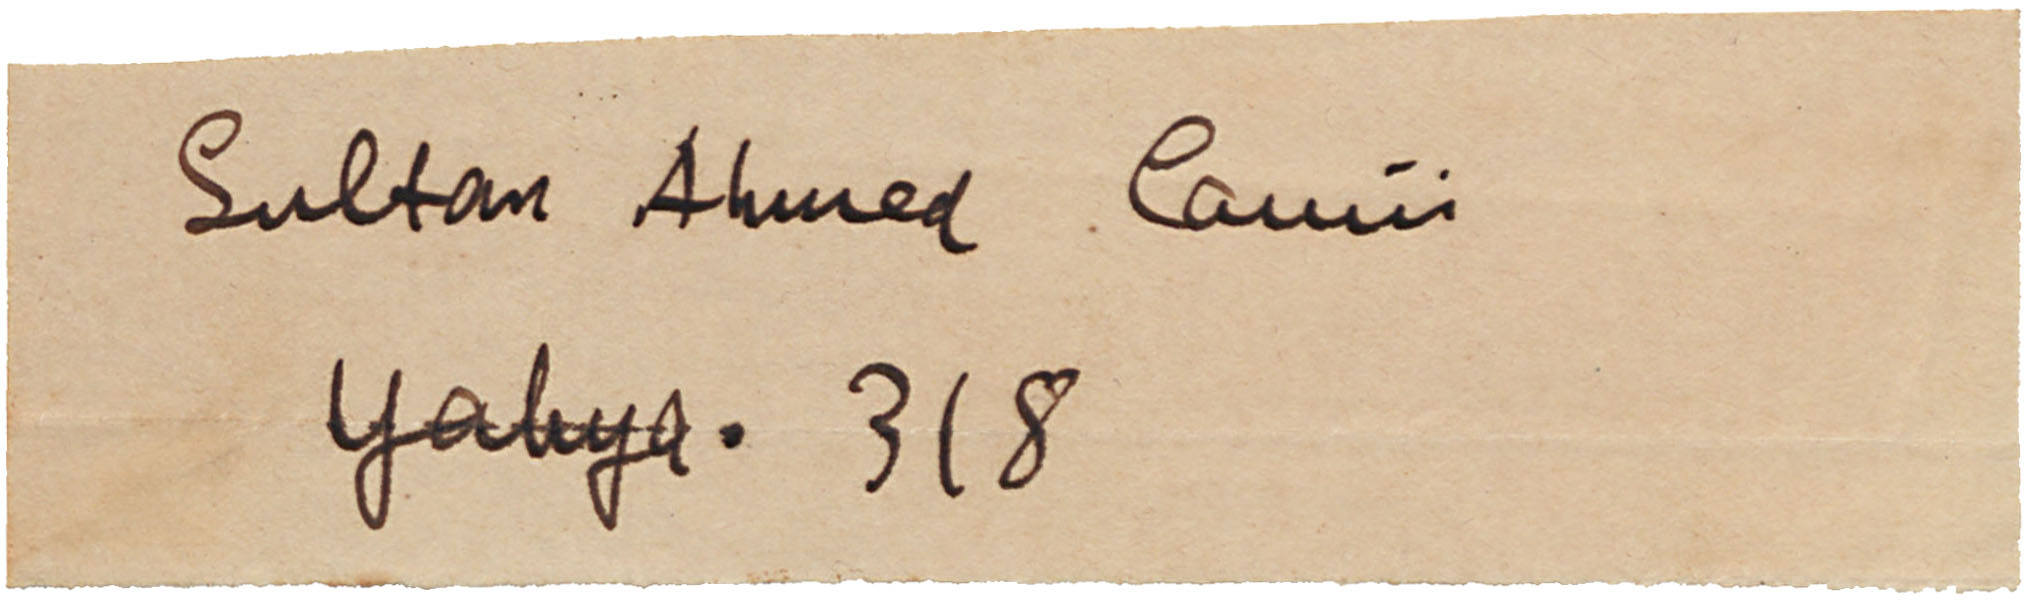 Sultan Ahmed Camii
Yahya. 318